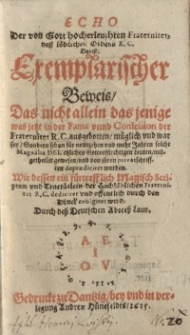 ECHO
Der von Gott hocherleuchten Fraternitet,
deß löblichen Ordens R. C.
Das ist,
Exemplarischer
Beweis/
Das nicht allein das jenige
was jetzt in der Fama unnd Confession der
Fraternitet R. C. ausgebotten/ müglich und war
sey/ Sondern schon für neuntzehen und mehr Jahren solche
Magnalia DEI, etzlichen Gottesfürchtigen Leuten/ mit-
getheilet gewesen/ und von ihren privatschriff-
ten depraediciret worden.
Wie dessen ein fürtrefflich Magisch Scri-
ptum und Tractätlein der Hochlöblichen Fraterni-
tet R. C. dediciret und offentlich durch den
Druck evulgiret wird:
Durch deß Deutschen
A E
I O
V
Gedruckt zu Dantzig/ bey und in ver-
legung Andreæ Hünefeldts/ 1615.